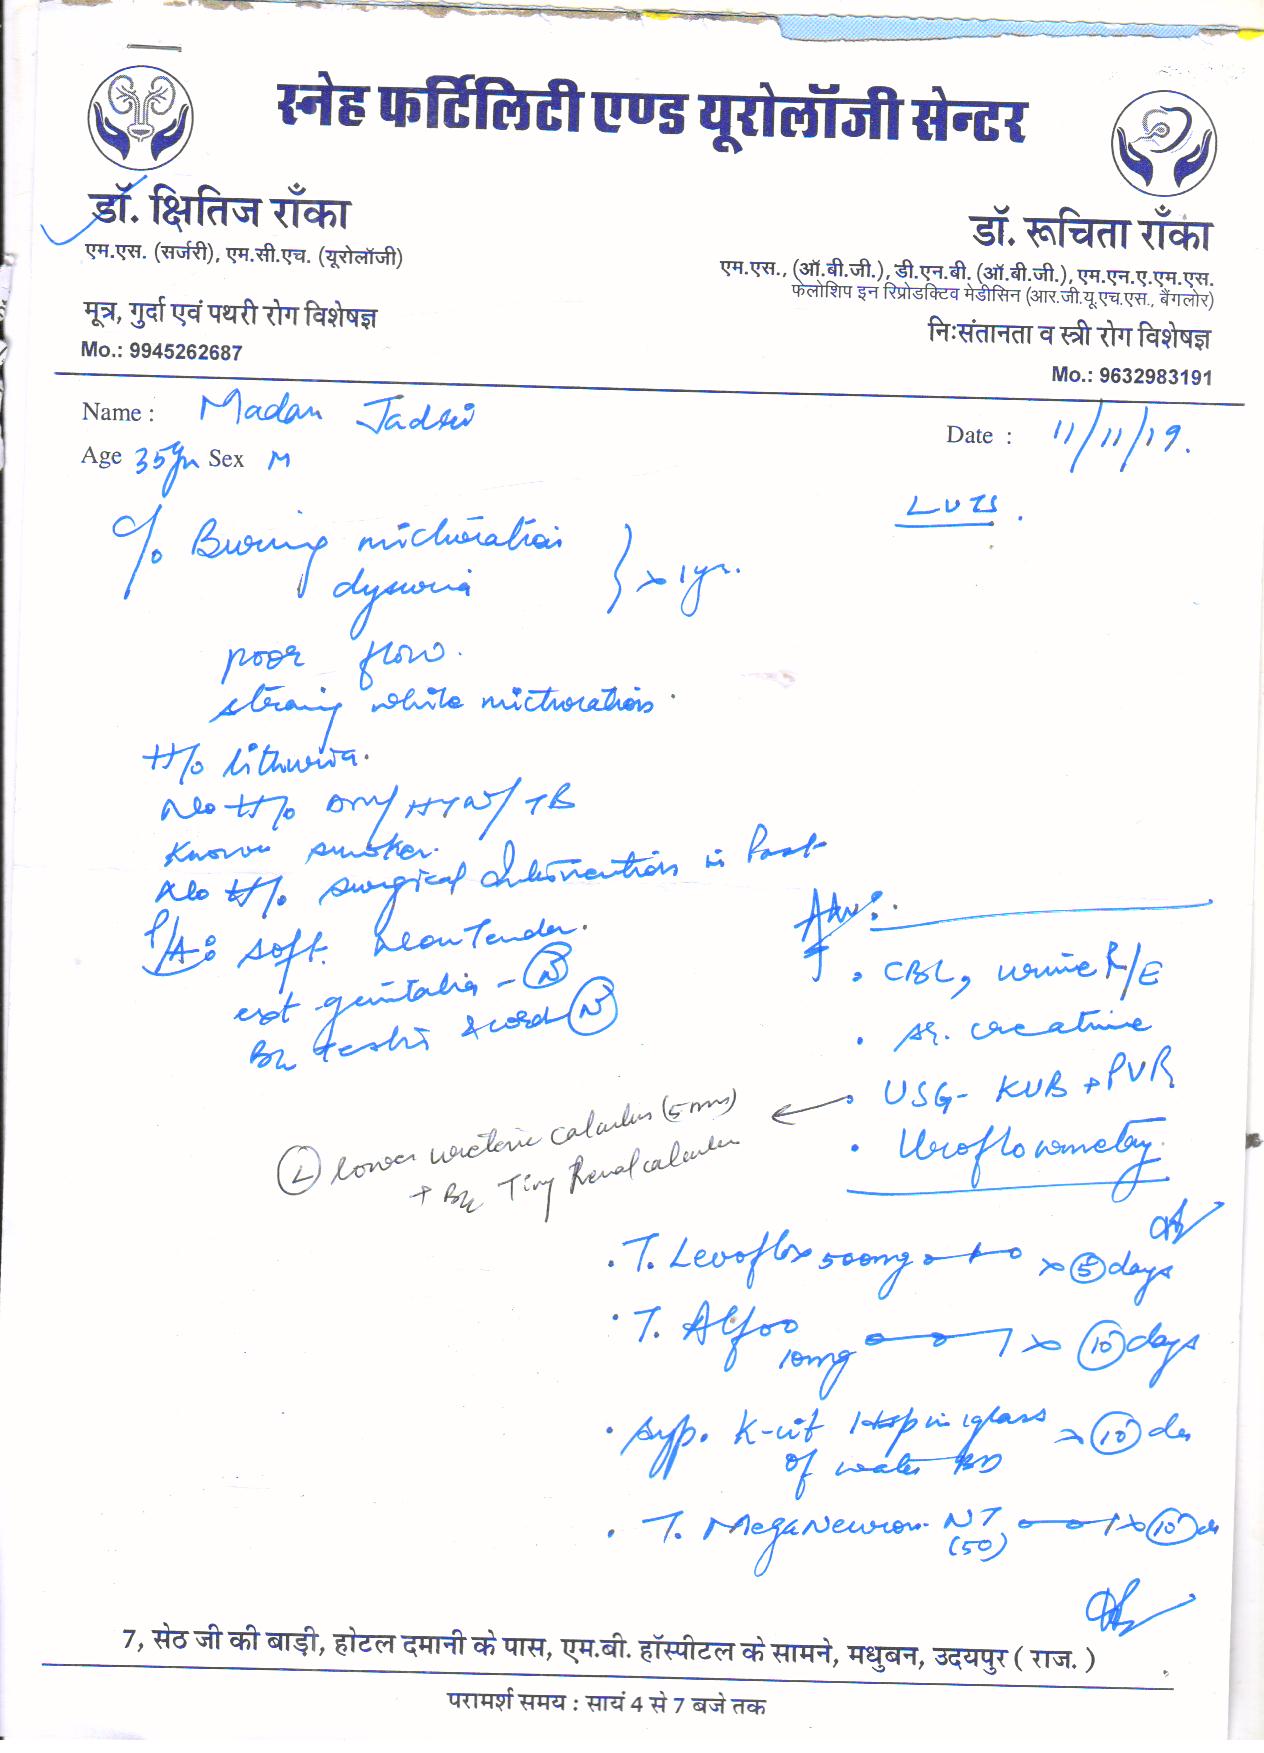 स्नेह फर्टिलिटी एण्ड यूरोलॉजी सेन्टर
डॉ. क्षितिज राँका
एम.एस. (सर्जरी), एम.सी.एच. (यूरोलॉजी)
मूत्र, गुर्दा एवं पथरी रोग विशेषज्ञ
Mo.: 9945262687
डॉ. रूचिता राँका
एम.एस., (ऑ.बी.जी.), डी.एन.बी. (ऑ.बी.जी.), एम.एन.ए.एम.एस.
फेलोशिप इन रिप्रोडक्टिव मेडीसिन (आर.जी.यू.एच.एस., बैंगलोर)
निःसंतानता व स्त्री रोग विशेषज्ञ
Mo.: 9632983191
Name : Madan
Date : 11/11/19.
Age 35yr Sex M
LUTS.
c/o Burning micturation
dysuria } x 1yr.
poor flow.
straing while micturation.
H/o lithuria.
No H/o DM/HTN/TB
Known smoker.
No H/o surgical Intervention in Past
P/A: soft. Nontender.
ext genitalia - N
B/L testis & cord N
Adv:
• CBC, urine R/E
• sr. creatinine
• USG- KUB + PVR
• Uroflowmetry
L lower ureteric calculus (5mm)
+ B/L Tiny Renal calculi
• T. Levoflox 500mg 0-1-0 x 5 days
• T. Alfoo
10mg 0-0-1 x 10 days
• syp. K-cit 1tsp in 1glass x 10 da
of water BD
• T. MegaNeuron NT 0-0-1 x 10 da
(50)
7, सेठ जी की बाड़ी, होटल दमानी के पास, एम.बी. हॉस्पीटल के सामने, मधुबन, उदयपुर ( राज. )
परामर्श समय : सायं 4 से 7 बजे तक